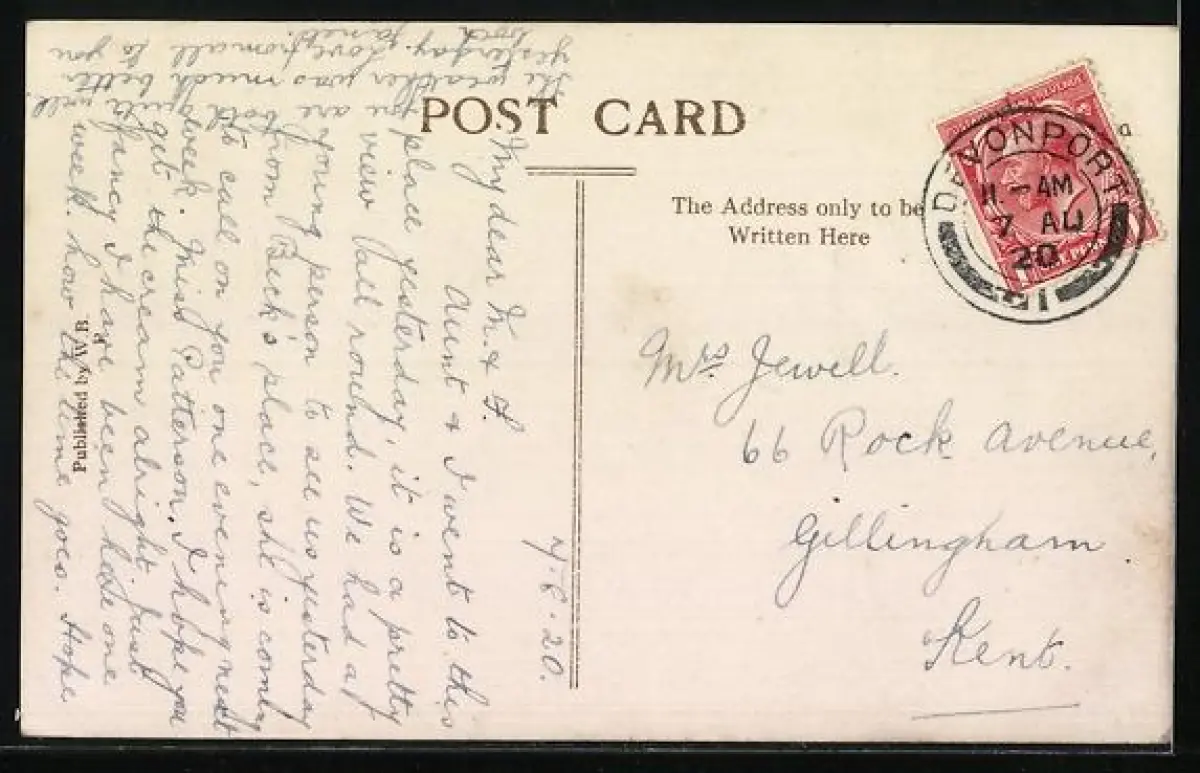 POST CARD
The Address only to be
Written Here
DEVONPORT
11 - AM
7 AU
20
Mrs Jewell.
66 Rock Avenue,
Gillingham
Kent.
Published by W.B.
7.8.20.
My dear M. & F.
Aunt & I went to this
place yesterday, it is a pretty
view all round. We had a
young person to see us yesterday
from Buck's place, she is coming
to call on you one evening next
week. Miss Patterson. I hope you
get the cream alright. Just
fancy I have been here one
week. how the time goes. Hope
you are both quite well.
The weather was much better
yesterday. Love from all to you
both Janet.